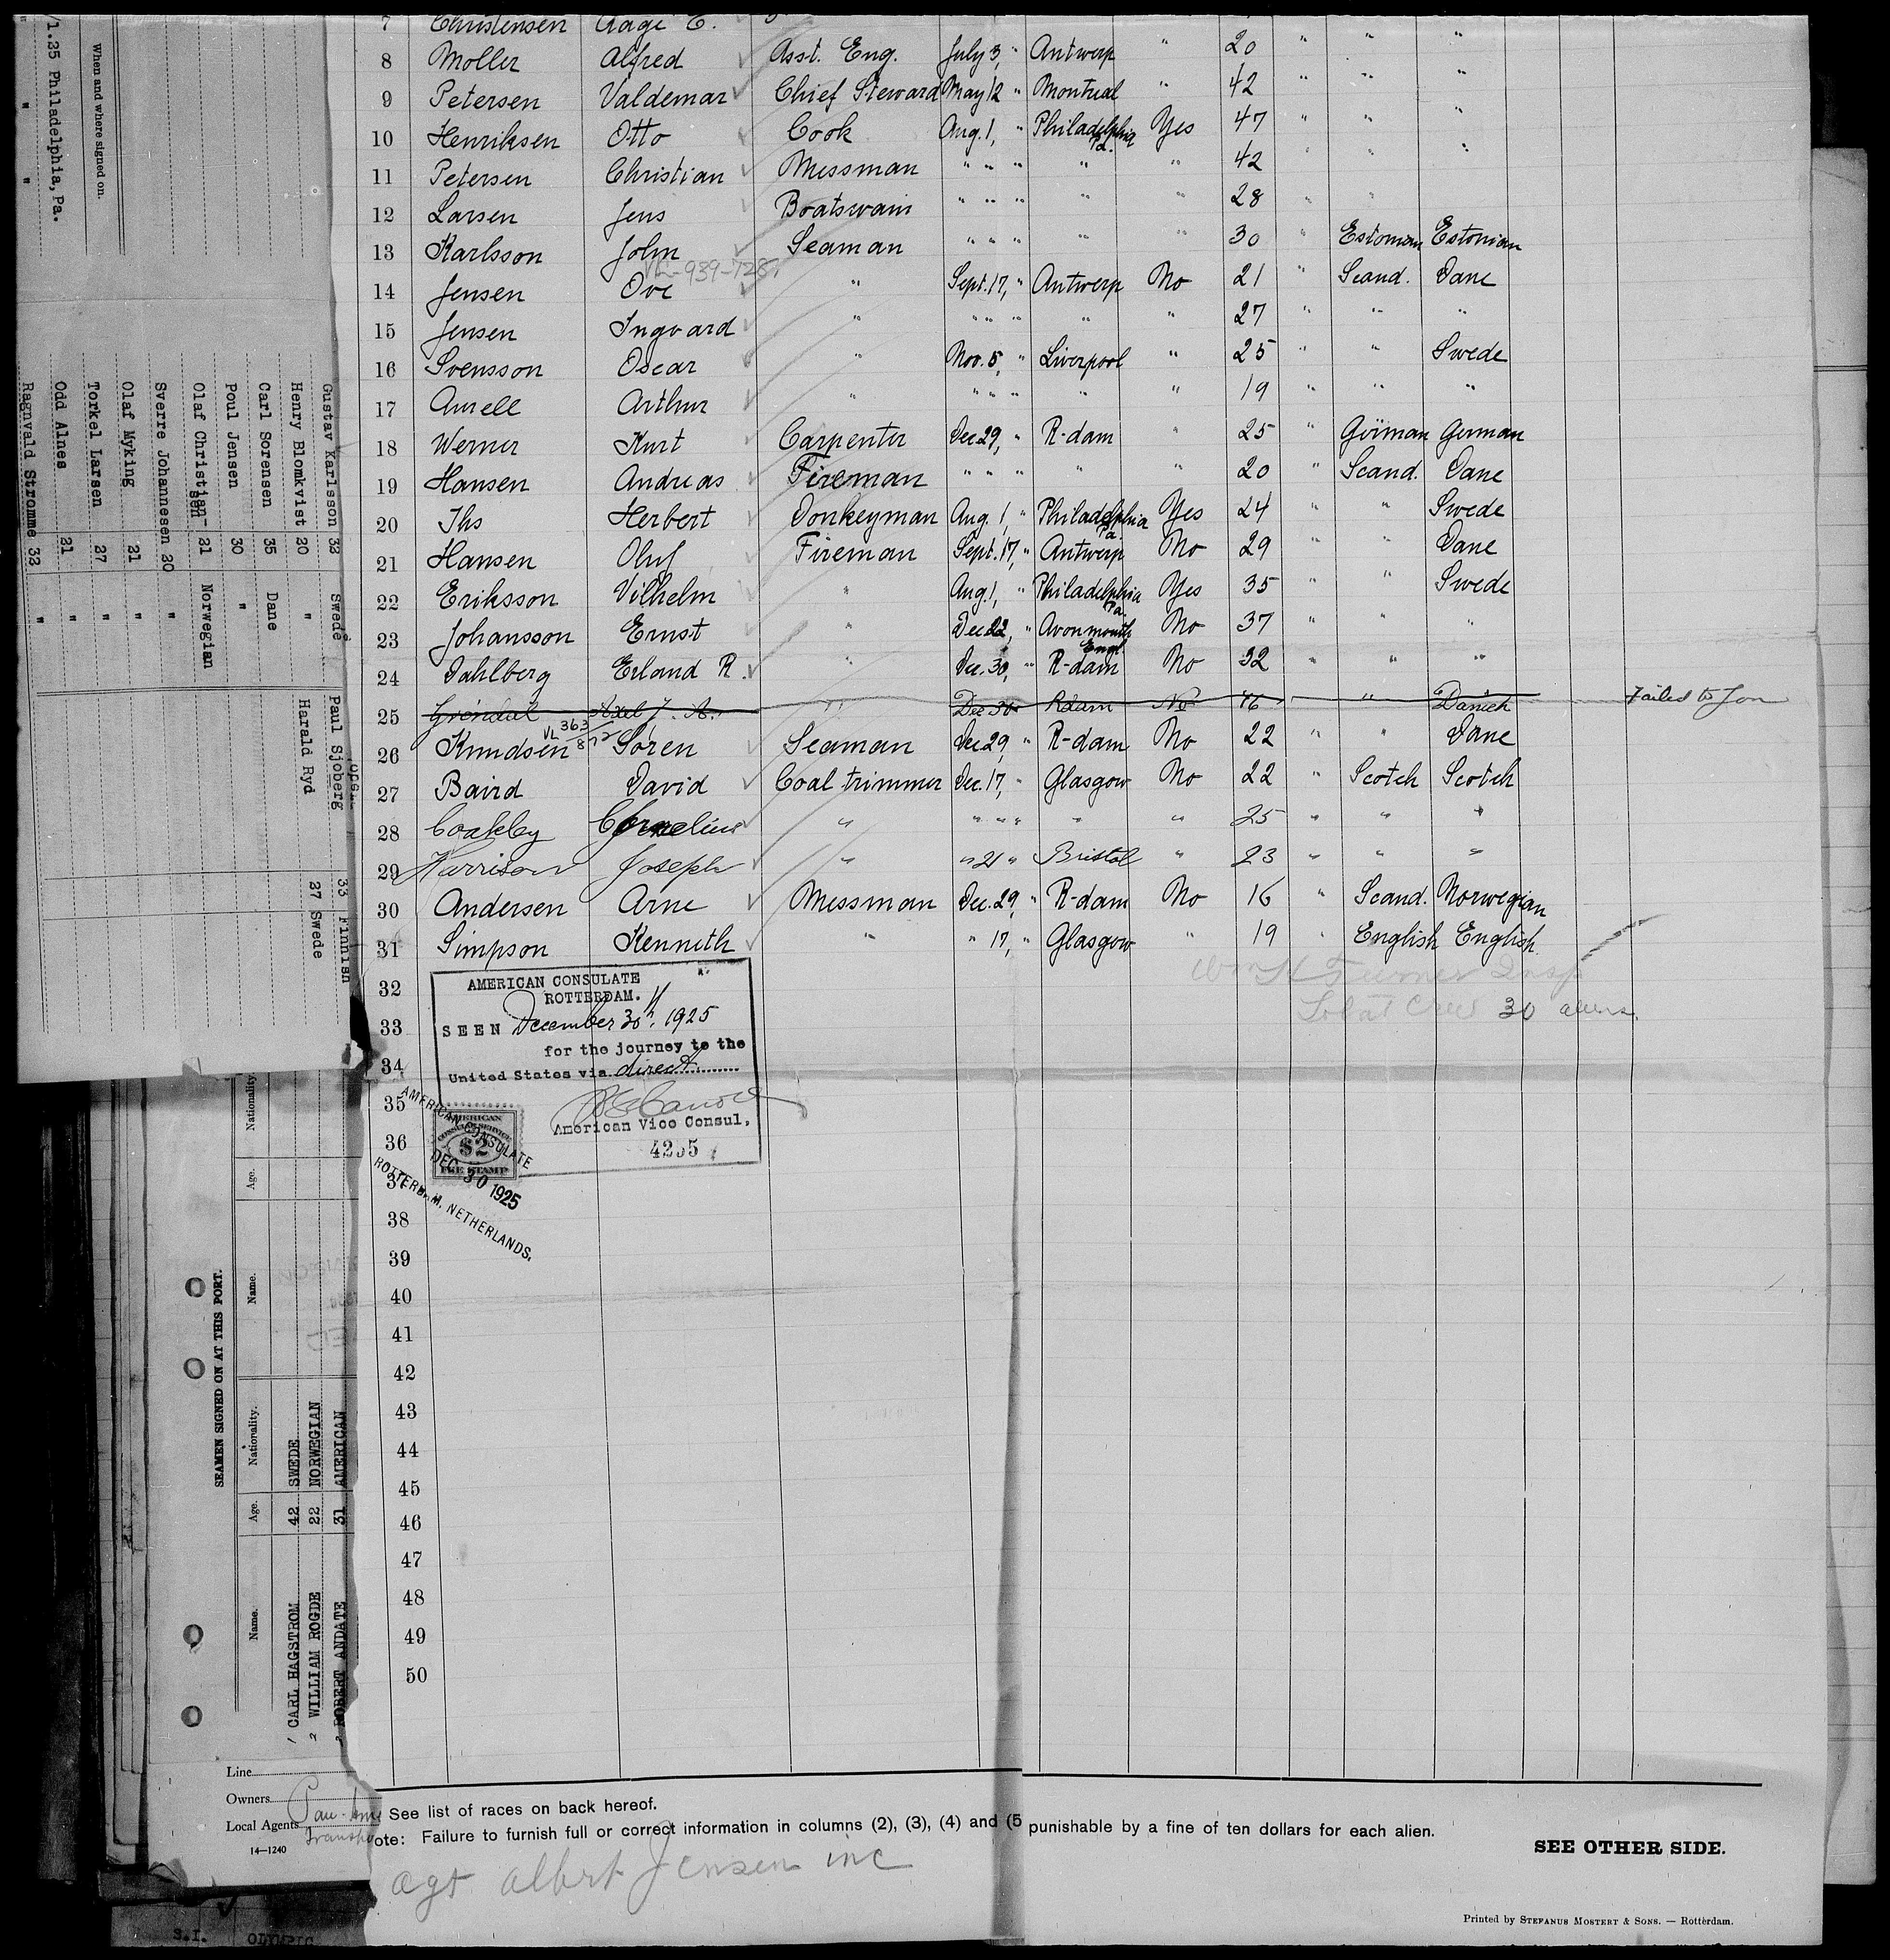 7 Christensen Aage C.
8 Moller Alfred Asst. Eng. July 3, " Antwerp " 20 " " "
9 Petersen Valdemar Chief Steward May 12 " Montreal " 42 " " "
10 Henriksen Otto Cook Aug. 1, " Philadelphia Pa. Yes 47 " " "
11 Petersen Christian Messman " " " " " 42 " " "
12 Larsen Jens Boatswain " " " " " 28 " "
13 Karlsson John Seaman " " " " " 30 " Estonian Estonian
VL-939-728
14 Jensen Ove " Sept. 17, " Antwerp No 21 " Scand. Dane
15 Jensen Ingvard " " " " " " 27 " " "
16 Svensson Oscar " Nov. 5, " Liverpool " 25 " " Swede
17 Aurell Arthur " " " " " " 19 " " "
18 Werner Kurt Carpenter Dec 29, " R-dam " 25 " German German
19 Hansen Andreas Fireman " " " " " 20 " Scand. Dane
20 Ihs Herbert Donkeyman Aug. 1, " Philadelphia Pa. Yes 24 " " Swede
21 Hansen Oluf Fireman Sept. 17, " Antwerp No 29 " " Dane
22 Eriksson Vilhelm " Aug. 1, " Philadelphia Pa. Yes 35 " " Swede
23 Johansson Ernst " Dec 22, " Avonmouth Engl. No 37 " " "
24 Dahlberg Erland R. " Dec. 30, " R-dam No 32 " " "
25 Gröndal Axel J. A. " Dec 30 Rdam No 46 " " Danish Failed to Join
VL 363/872
26 Knudsen Sören Seaman Dec 29, " R-dam No 22 " " Dane
27 Baird David Coal trimmer Dec. 17, " Glasgow No 22 " Scotch Scotch
28 Coakley Cornelius " " " " " " 25 " " "
29 Harrison Joseph " " 21 " Bristol " 23 " " "
30 Andersen Arne Messman Dec. 29, " R-dam No 16 " Scand. Norwegian
31 Simpson Kenneth " " 17, " Glasgow " 19 " English English
Turner Insp
Total Crew 30 aliens.
32
33
34
35
36
37
38
39
40
41
42
43
44
45
46
47
48
49
50
AMERICAN CONSULATE
ROTTERDAM.
SEEN December 30th, 1925
for the journey to the
United States via direct
American Vice Consul,
4255
AMERICAN
CONSULAR SERVICE
$2
FEE STAMP
AMERICAN CONSULATE
DEC 30 1925
ROTTERDAM, NETHERLANDS.
See list of races on back hereof.
ote: Failure to furnish full or correct information in columns (2), (3), (4) and (5 punishable by a fine of ten dollars for each alien.
SEE OTHER SIDE.
agt albert Jensen inc
Printed by STEFANUS MOSTERT & SONS. — Rotterdam.
When and where signed on.
/1.35 Philadelphia, Pa.
" "
Gustav Karlsson 32 Swede
Henry Blomkvist 20 "
Carl Sorensen 35 Dane
Poul Jensen 30 "
Olaf Christian-sen 21 Norwegian
Sverre Johannesen 20 "
Olaf Myking 21 "
Torkel Larsen 27 "
Odd Alnes 21 "
Ragnvald Stromme 32 "
Paul Sjoberg 33 Finnish
Harald Ryd 27 Swede
SEAMEN SIGNED ON AT THIS PORT.
Name. Age. Nationality. Name. Age. Nationality.
1 CARL HAGSTROM 42 SWEDE
2 WILLIAM ROGDE 22 NORWEGIAN
ROBERT ANDATE 31 AMERICAN
Line
Owners
Local Agents
Pan-Ame
Transpo
14—1240
S.I. OLYMPIC